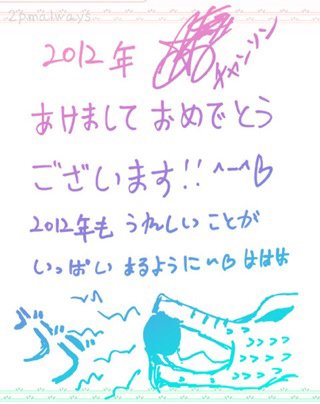 2pmalways
2012年
チャンソン
あけまして おめでとう
ございます!! ^ー^♡
2012年も うれしい ことが
いっぱい あるように~♡ ははは
ブブブ